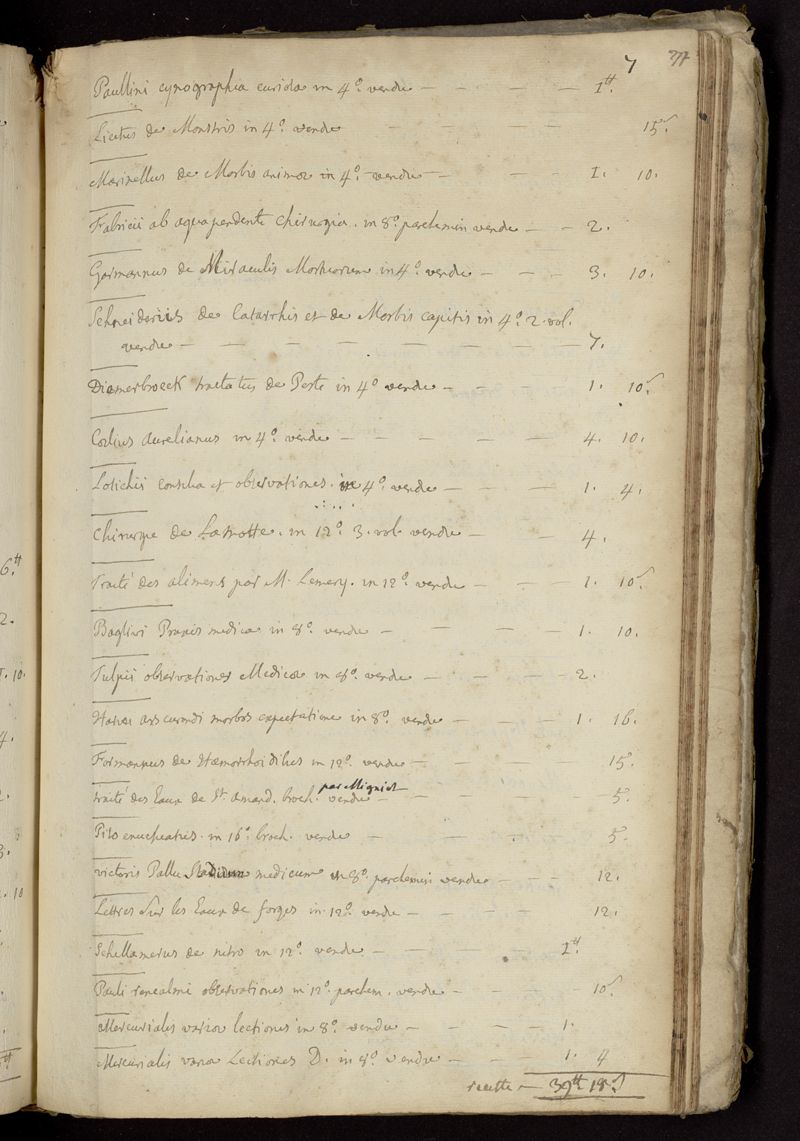 7 37
Paullini cynographia curiosa in 4º. vendu — — — — 1ᵗᵗ.
Licetus de Monstris in 4º. vendu — — — 15ˢ.
Marinellus de Morbis animæ in 4º. vendu — — — 1. 10.
Fabricii ab aquapendente Chirurgia. in 8º. parchemin vendu — — 2.
Garmannus de Miraculis Mortuorum in 4º. vendu — — — 3. 10.
Schneiderius de Catarrhis et de Morbis capitis in 4º. 2. vol.
vendu — — — — — — — — 7.
Diemerbroeck tractatus de Peste in 4º vendu — — — 1. 10ˢ.
Cœlius aurelianus in 4º. vendu — — — — — 4. 10.
Lotichii consilia et observationes. in 4º. vendu — — — 1. 4.
Chirurgie de Lamotte. in 12º. 3. vol. vendu — — 4.
Traité des alimens par M. Lemery. in 12º. vendu — — — 1. 10ˢ.
Baglivi Praxis medica in 8º. vendu — — — — 1. 10.
Tulpii observationes Medicæ in 8º. vendu — — — 2.
Harvei ars curandi morbos expectatione in 8º. vendu — — — 1. 16.
Formannus de Hæmorrhoidibus in 12º. vendu — — — 15ˢ.
par Mignot
traité des Eaux de Sᵗ. amand. broch. vendu — — — — 5.
Piso enucleatus. in 16º. broch. vendu — — — 5.
victoris Pallu Stadium medicum in 8º. parchemin vendu — — — 12.
Lettres sur les Eaux de forges in 12º. vendu — — — — 12.
Schellamerus de nitro in 12º. vendu — — — — 1ᵗᵗ.
Pauli renealmi observationes in 12º. parchem. vendu — — — 10ˢ.
Mercurialis variæ lectiones in 8º. vendu — — — 1.
Mercurialis variæ Lectiones D. in 8º. vendu — — — 1. 4
recette — 39ᵗᵗ 18ˢ
6ᵗᵗ
2.
10.
4.
3.
10